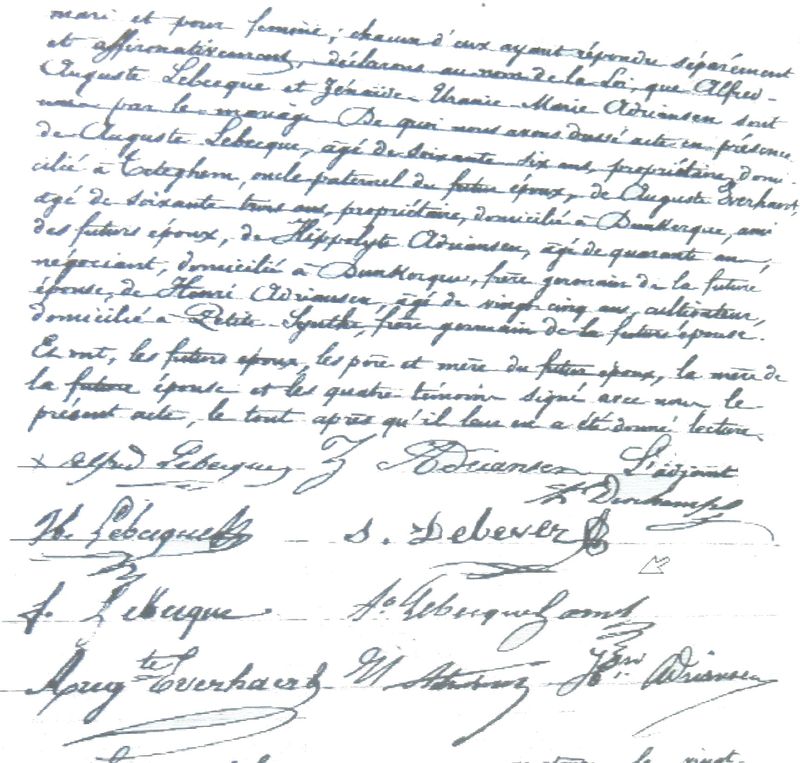 mari et pour femme; chacun d'eux ayant répondu séparément
et affirmativement, déclarons au nom de la loi, que Alfred-
Auguste Lebecque et Zénaïde-Uranie-Marie Adriansen sont
unis par le mariage. De quoi nous avons dressé acte en présence
de Auguste Lebecque, âgé de soixante-six ans, propriétaire, domi-
cilié à Téteghem, oncle paternel du futur époux, de Auguste Everhaert,
âgé de soixante trois ans, propriétaire, domicilié à Dunkerque, ami
des futurs époux, de Hippolyte Adriansen, âgé de quarante ans,
négociant, domicilié à Dunkerque, frère germain de la future
épouse, de Henri Adriansen, âgé de vingt-cinq ans, cultivateur,
domicilié à Petite-Synthe, frère germain de la future épouse.
Et ont, les futurs époux, les père et mère du futur époux, la mère de
la future épouse et les quatre témoins signé avec nous le
présent acte, le tout après qu'il leur en a été donné lecture.
Alfred Lebecque Z Adriansen L'adjoint
H. Lebecque S. Debever
f. Lebecque Lebecque
Aug.te Everhaert H Adriansen